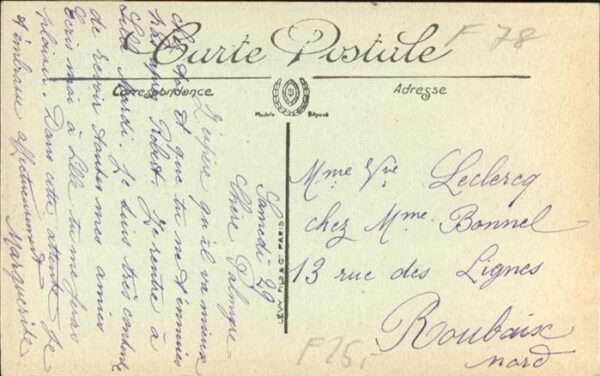 Carte Postale
F 78
Correspondance
Adresse
Modèle Déposé
LEVY FILS & Cie PARIS
Samedi 29
Chère Palmyre
J'espère qu'il va mieux
et que tu ne t'ennuies
pas trop Robert. Je rentre à
Lille Mardi. Je suis très contente
de revoir toutes mes amies
Ecris moi à Lille tu me feras
plaisir. Dans cette attente je
t'embrasse affectueusement
Marguerite
Mme Vve Leclercq
chez Mme Bonnel
13 rue des Lignes
Roubaix
Nord
F25,-